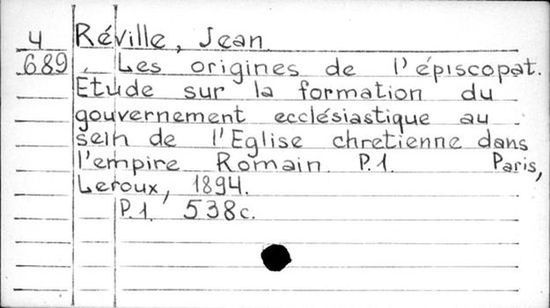 4 Réville, Jean
689 . Les origines de l'épiscopat.
Etude sur la formation du
gouvernement ecclésiastique au
sein de l'Eglise chretienne dans
l'empire Romain. P.1. Paris,
Leroux, 1894.
P.1. 538c.